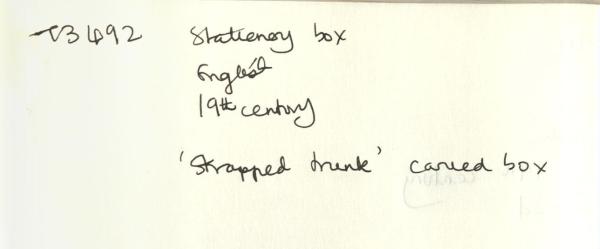 T3492 Stationery box
English
19th century
'Strapped trunk' carved box